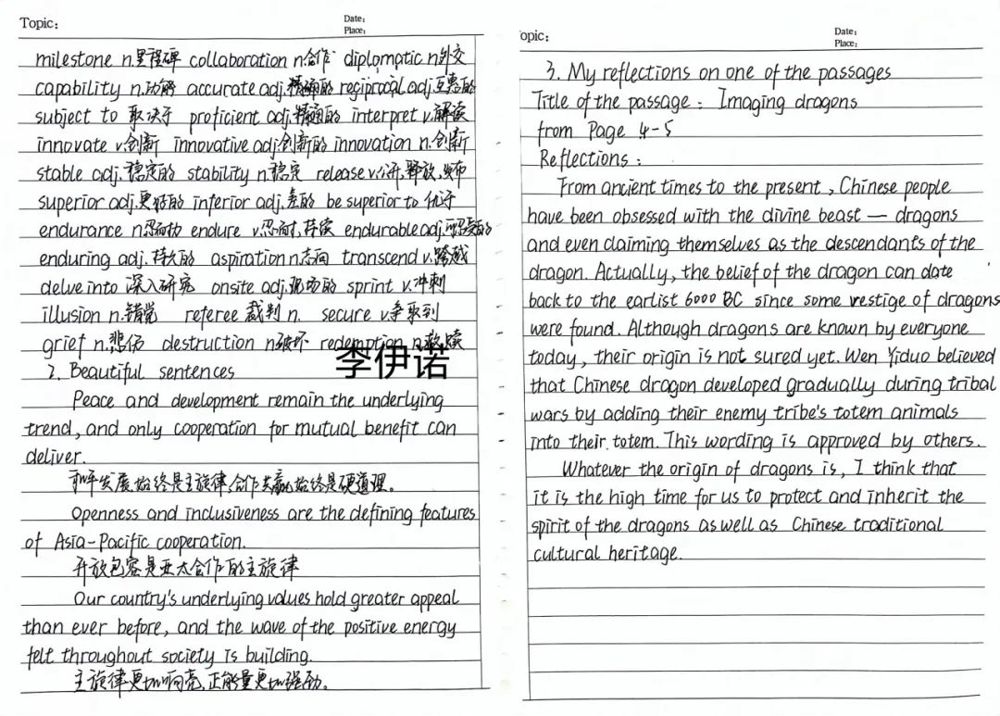 Topic:
Date:
Place:
milestone n.里程碑 collaboration n.合作 diplomatic n.外交
capability n.功能 accurate adj.精确的 regiprocal adj.互惠的
subject to 取决于 proficient adj.精通的 interpret v.解读
innovate v.创新 innovative adj.创新的 innovation n.创新
stable adj.稳定的 stability n.稳定 release v.公开,释放,发布
superior adj.更好的 inferior adj.差的 be superior to 优于
endurance n.忍耐力 endure v.忍耐,持续 endurable adj.可忍受的
enduring adj.持久的 aspiration n.志向 transcend v.跨越
delve into 深入研究 onsite adj.现场的 sprint v.冲刺
illusion n.错觉 referee 裁判 n. secure v.争取到
grief n.悲伤 destruction n.破坏 redemption n.救赎
李伊诺
2. Beautiful sentences
Peace and development remain the underlying
trend, and only cooperation for mutual benefit can
deliver.
和平发展始终是主旋律,合作共赢始终是硬道理。
Openness and inclusiveness are the defining features
of Asia-Pacific cooperation.
开放包容是亚太合作的主旋律
Our country's underlying values hold greater appeal
than ever before, and the wave of the positive energy
felt throughout society is building.
主旋律更加响亮,正能量更加强劲。
opic:
Date:
Place:
3. My reflections on one of the passages
Title of the passage: Imaging dragons
from Page 4-5
Reflections:
From ancient times to the present, Chinese people
have been obsessed with the divine beast — dragons
and even claiming themselves as the descendants of the
dragon. Actually, the belief of the dragon can date
back to the earlist 6000 BC since some vestige of dragons
were found. Although dragons are known by everyone
today, their origin is not sured yet. Wen Yiduo believed
that Chinese dragon developed gradually during tribal
wars by adding their enemy tribe's totem animals
into their totem. This wording is approved by others.
Whatever the origin of dragons is, I think that
it is the high time for us to protect and inherit the
spirit of the dragons as well as Chinese traditional
cultural heritage.